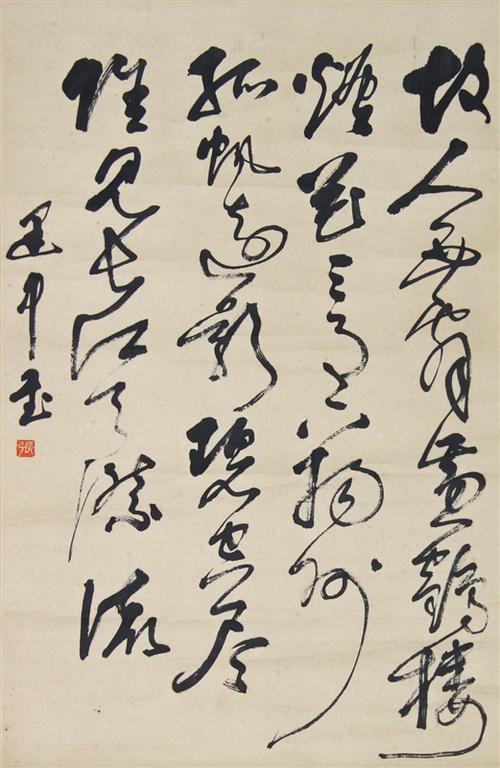 故人西辭黃鶴樓
煙花三月下揚州
孤帆遠影碧空尽
惟見長江天際流
張